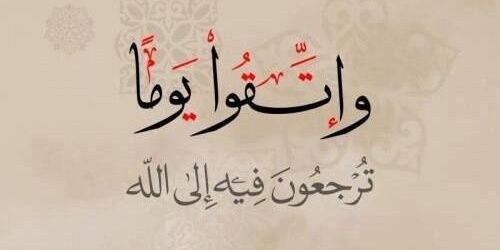 وإتَّقُوا يَومًا
تُرْجَعُونَ فِيهِ إِلىٰ اللّٰه